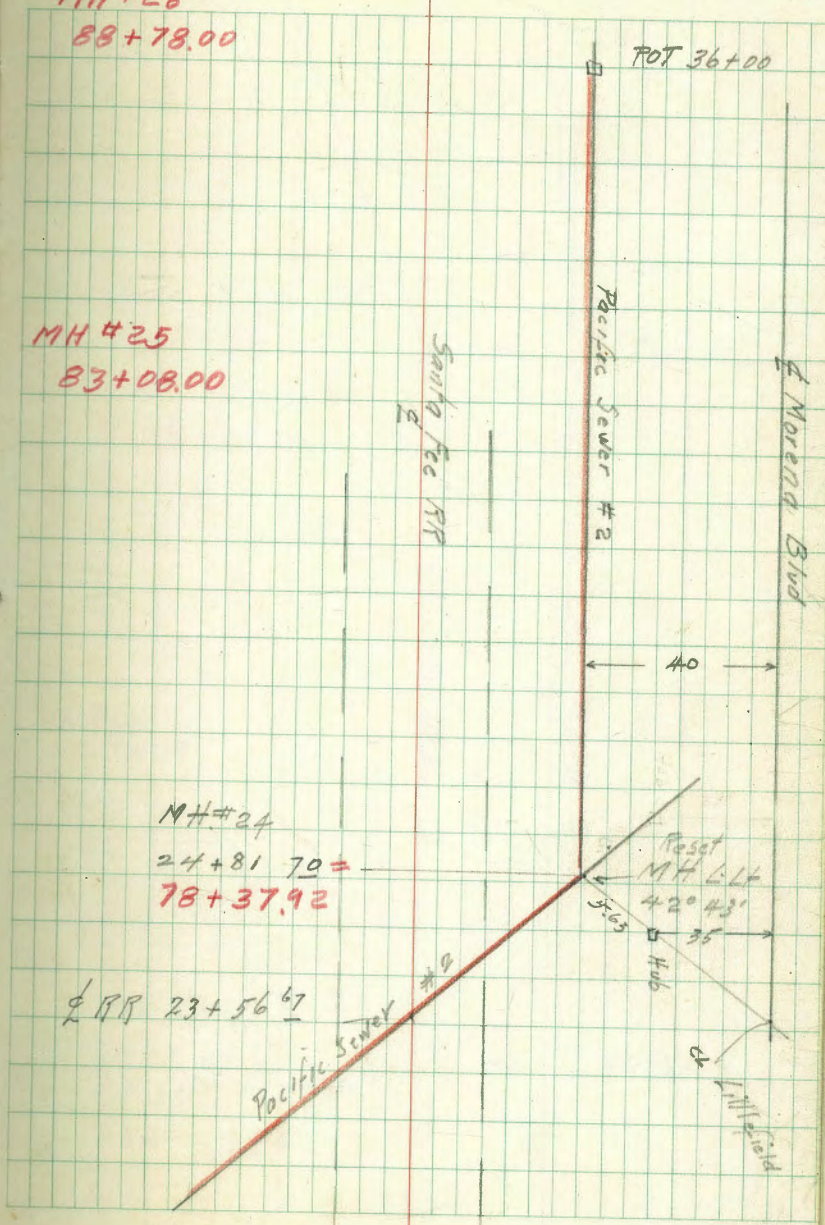 88+78.00
POT 36+00
MH #25
83+08.00
Pacific Sewer #2
Santa Fee RR
℄
℄ Morena Blvd
40
MH #24
24+81 70 =
78+37.92
Reset
MH L Lt
42° 43'
35
Hub
℄ RR 23+56 67
Pacific Sewer #2
Littlefield